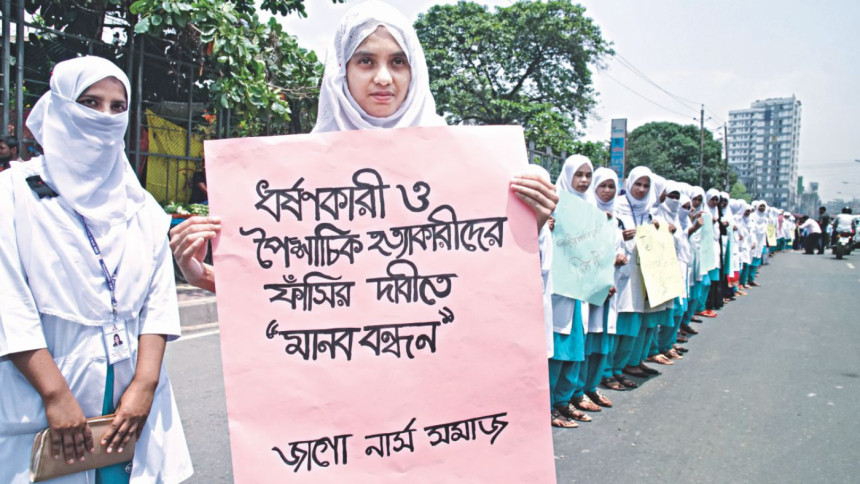 ধর্ষণকারী ও
পৈশাচিক হত্যাকারীদের
ফাঁসির দাবীতে
“মানব বন্ধন”
জাগো নার্স সমাজ